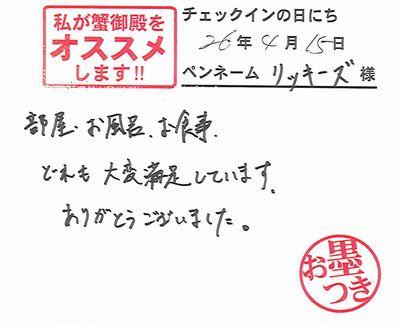 私が蟹御殿を
オススメ
します!!
チェックインの日にち
26年4月15日
ペンネーム リッキーズ 様
部屋、お風呂、お食事、
どれも 大変満足しています。
ありがとうございました。
お墨
つき